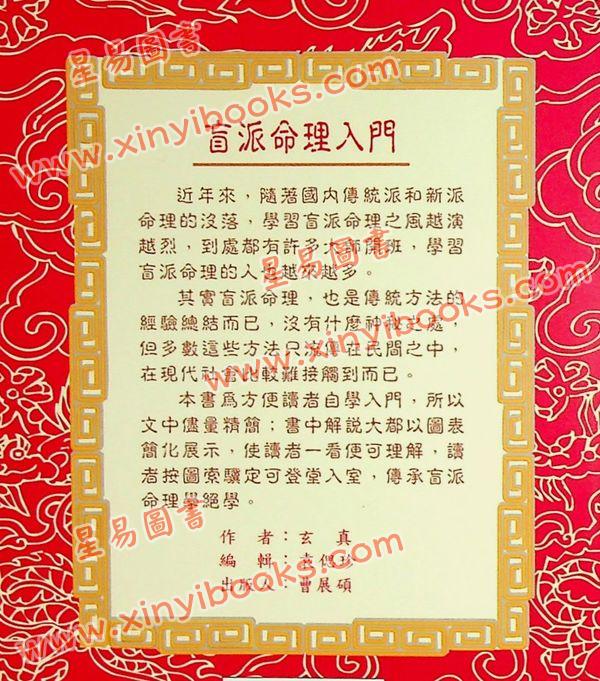 星易圖書
www.xinyibooks.com
盲派命理入門
近年來，隨著國內傳統派和新派
命理的没落，學習盲派命理之風越演
越烈，到處都有許多大師開班，學習
盲派命理的人也越來越多。
星易圖書
www.xinyibooks.com
其實盲派命理，也是傳統方法的
經驗總結而已，沒有什麼神秘之處，
但多數這些方法只流傳在民間之中，
在現代社會比較難接觸到而已。
本書爲方便讀者自學入門，所以
文中儘量精簡；書中解說大都以圖表
簡化展示，使讀者一看便可理解，讀
者按圖索驥定可登堂入室，傳承盲派
命理學絕學。
星易圖書
www.xinyibooks.com
作　者：玄　真
編　輯：袁偲珍
出版人：曹展碩